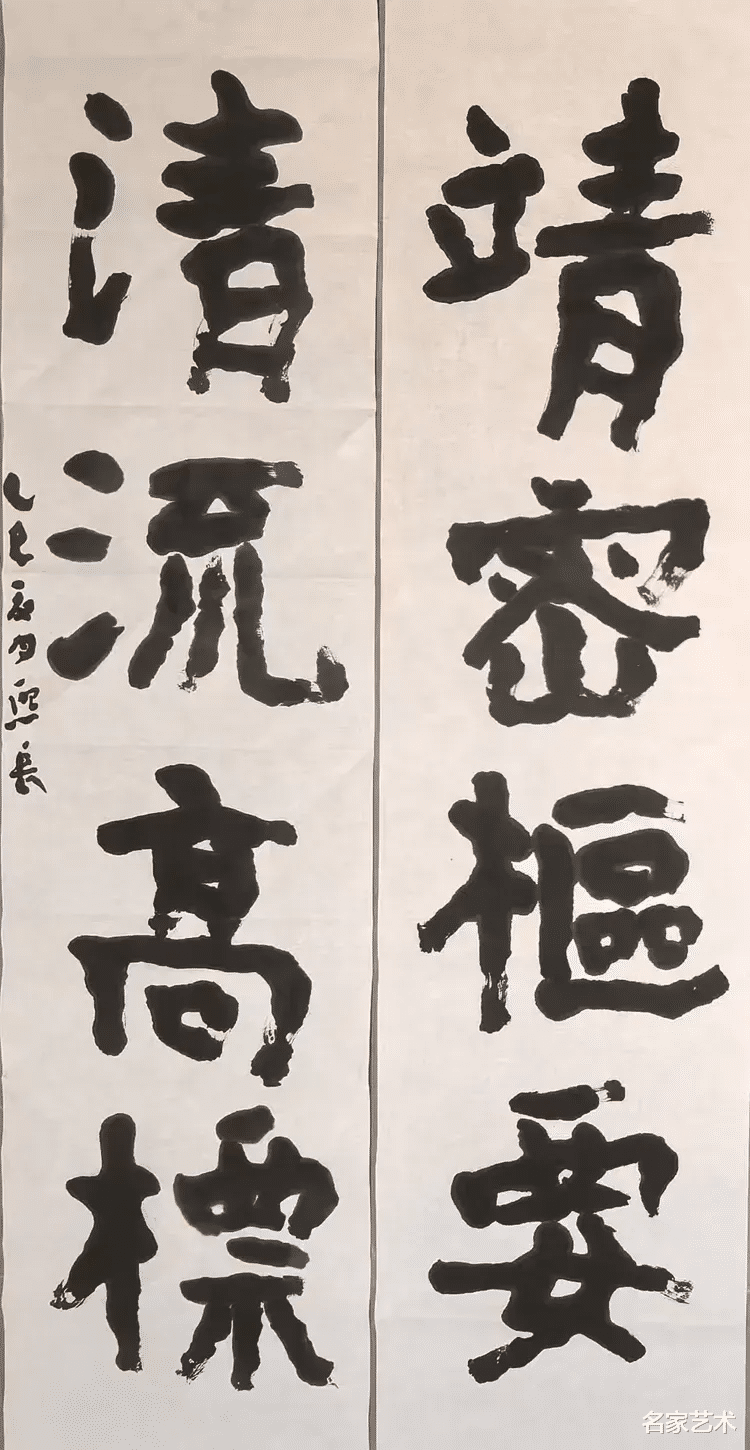 靖密樞要
清流高標
乙巳初月
名家艺术